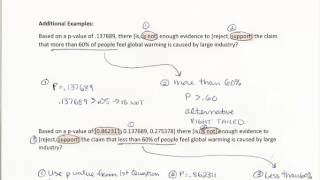 Additional Examples:
①
②
Based on a p-value of .137689, there [is, is not] enough evidence to [reject, support] the claim
that more than 60% of people feel global warming is caused by large
industry?
① P = .137689
.137689 > .05 → IS NOT
② more than 60%
P > .60
alternative
RIGHT TAILED
Based on a p-value of [0.862311, 0.137689, 0.275378] there [is, is not] enough evidence to
[reject, support] the claim that less than 60% of people feel global warming is caused by large
industry?
① Use p value from 1st Question
② P = .862311
③ Less than 60%